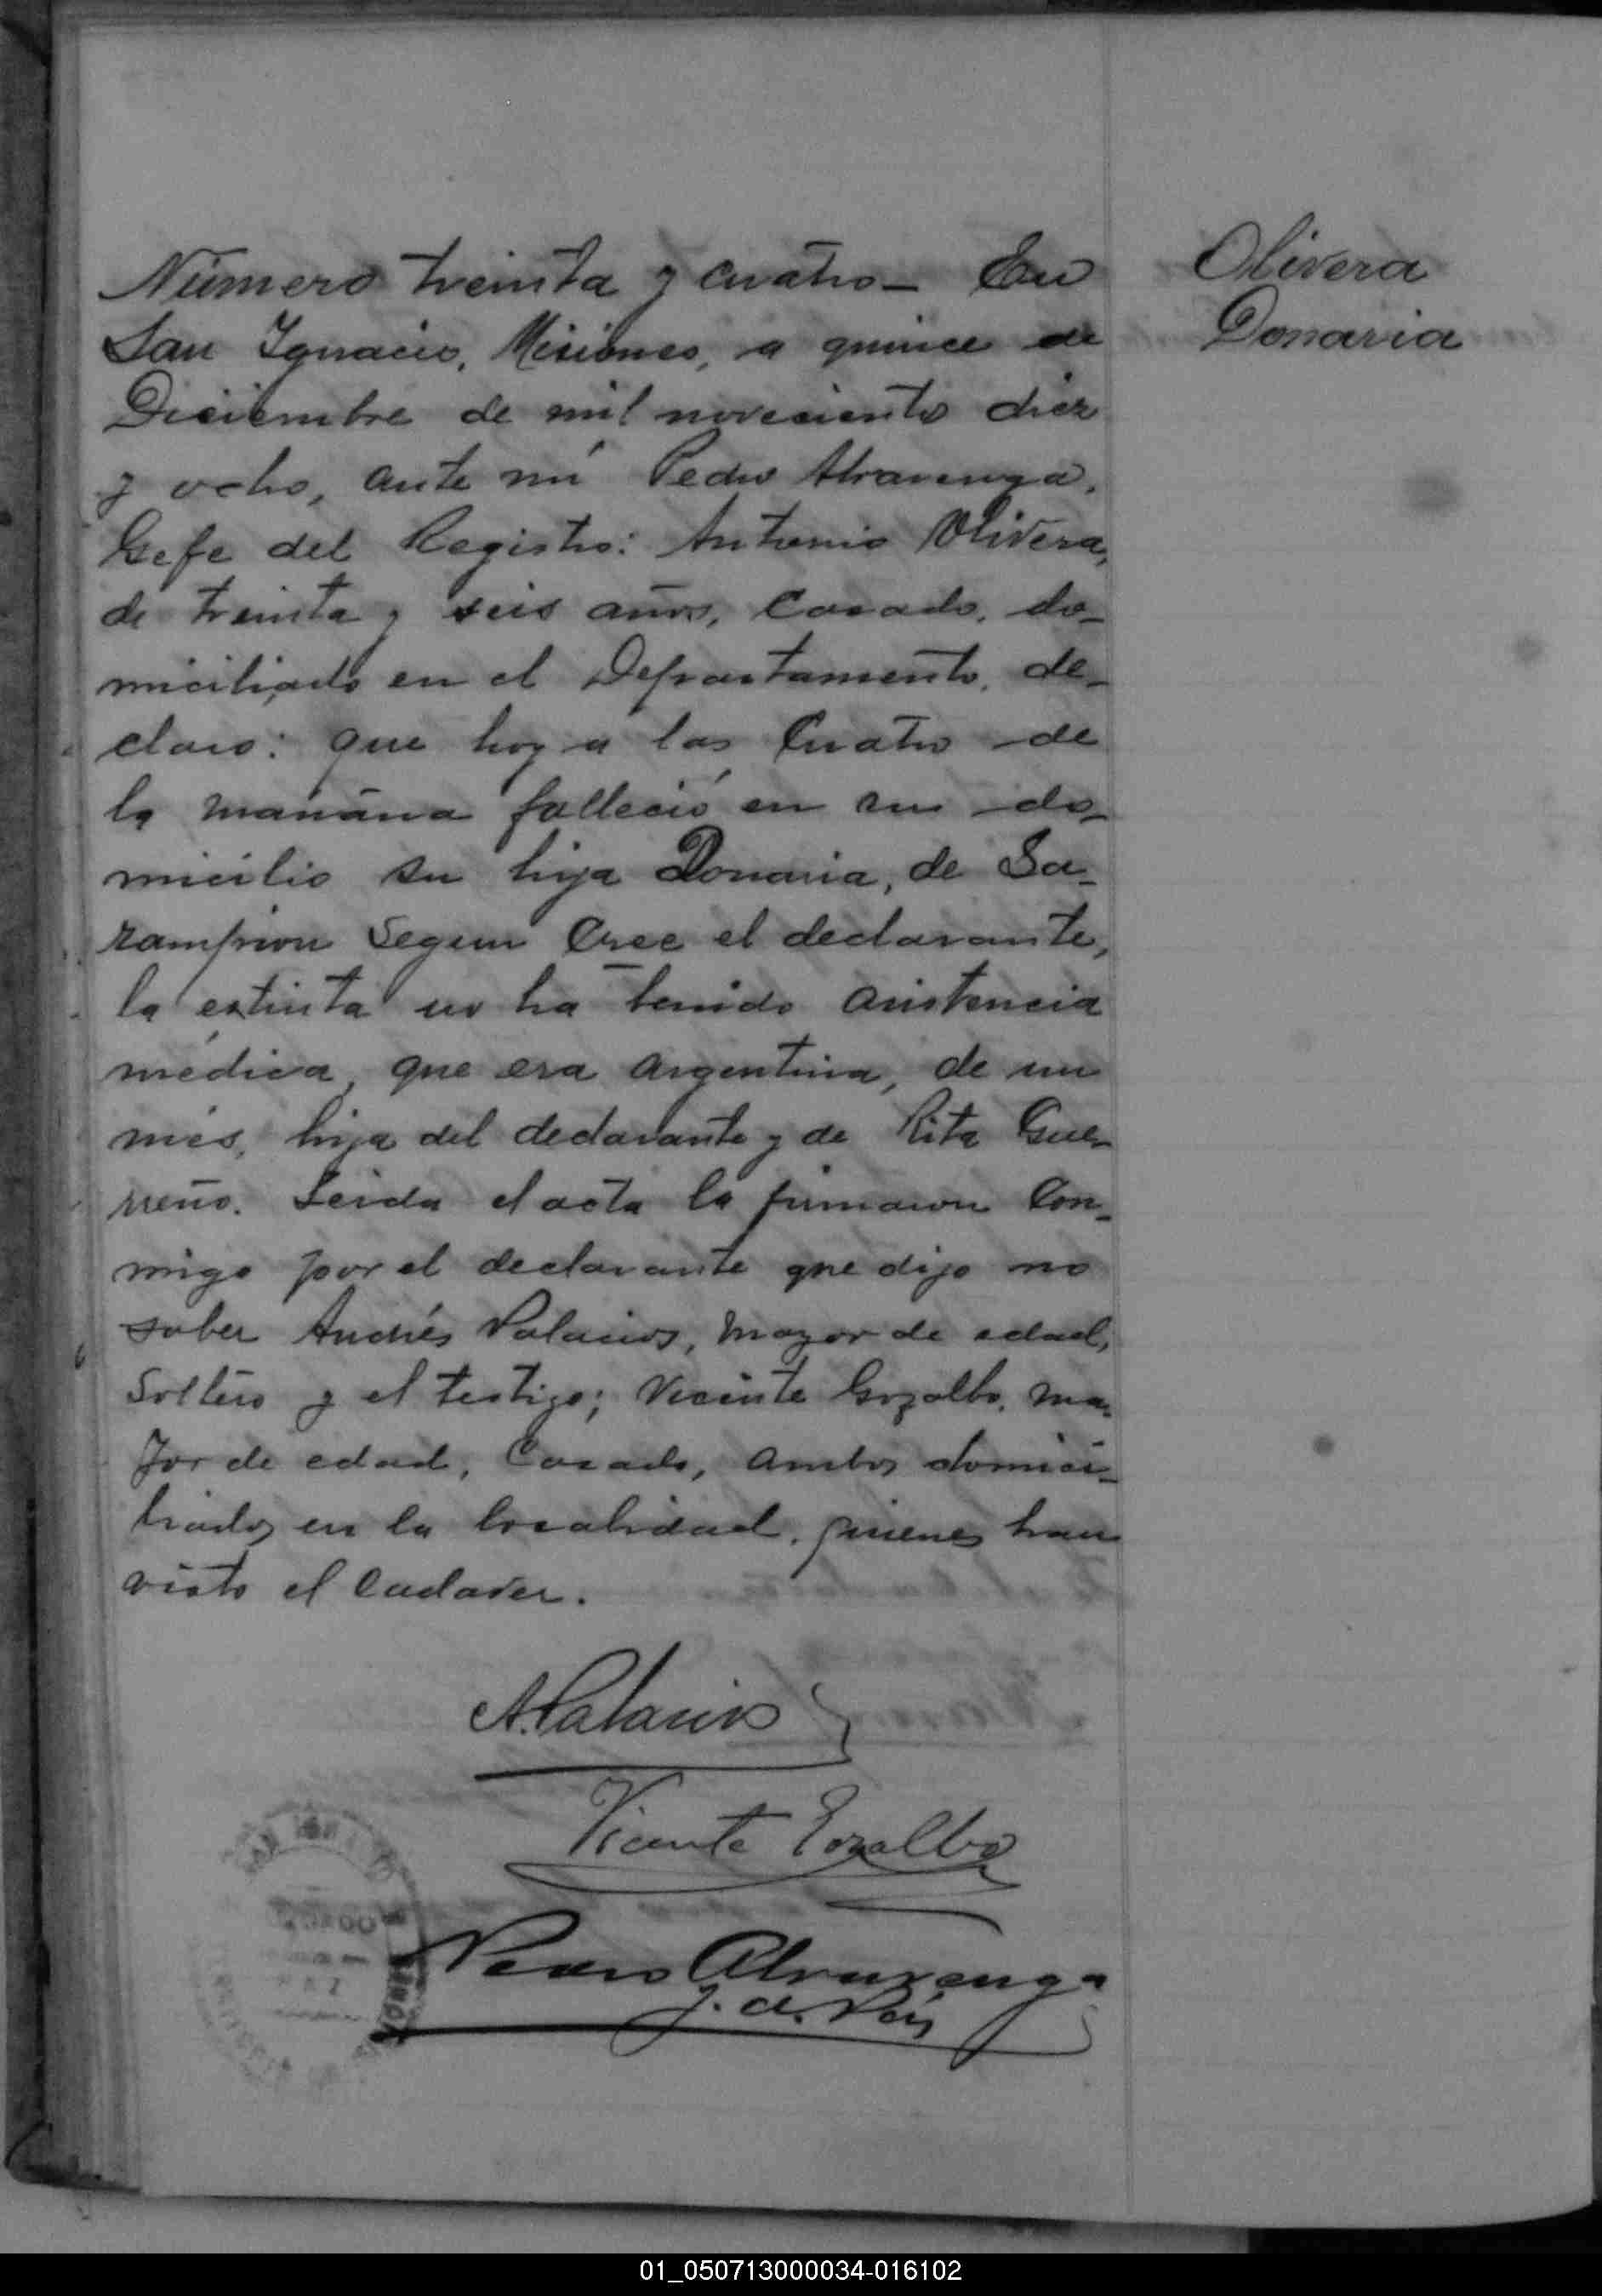 Número treinta y cuatro— En
San Ignacio, Misiones, a quince de
Diciembre de mil novecientos diez
y ocho, ante mí Pedro Alvarenga,
Gefe del Registro: Antonio Olivera,
de treinta y seis años, Casado, do-
miciliado en el Departamento, de-
claro: que hoy a las Cuatro de
la mañana falleció en su do-
micilio su hija Donaria, de Sa-
rampion Segun Cree el declarante,
la extinta no ha tenido asistencia
médica, que era argentina, de un
més, hija del declarante y de Rita Gue-
rreño. Leida el acta la firmaron Con-
migo por el declarante que dijo no
saber Andrés Palacios, mayor de edad,
Soltero y el testigo; Vicente Gozalbo, ma-
yor de edad, Casado, ambos domici-
liados en la localidad, quienes han
visto el Cadaver.
Olivera
Donaria
A. Palacios
Vicente Gozalbo
Pedro Alvarenga
J. de Paz
SAN IGNACIO
01_050713000034-016102